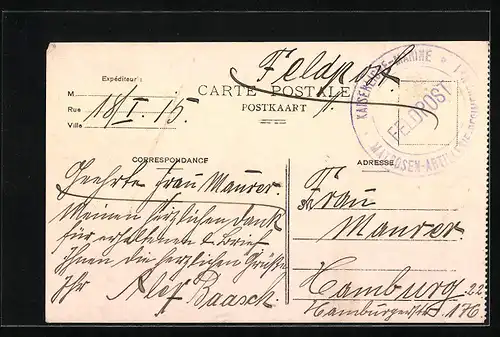 Feldpost
Expéditeur:
M
Rue
Ville
18/I. 15.
CARTE POSTALE
POSTKAART
KAISERLICHE-MARINE
MATROSEN-ARTILLERIE-REGIM
FELDPOST
CORRESPONDANCE
Geehrte Frau Maurer.
Meinen herzlichen Dank
für erhaltenen l. Brief
Ihnen die herzlichen Grüße
Ihr Alex Baasch.
ADRESSE
Frau
Maurer.
Hamburg. 22
Hamburgerstr. 176